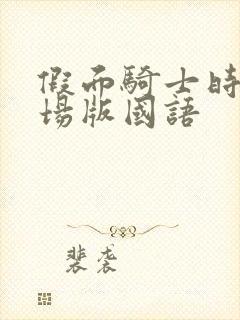 假面騎士時
場版國語
裴袭